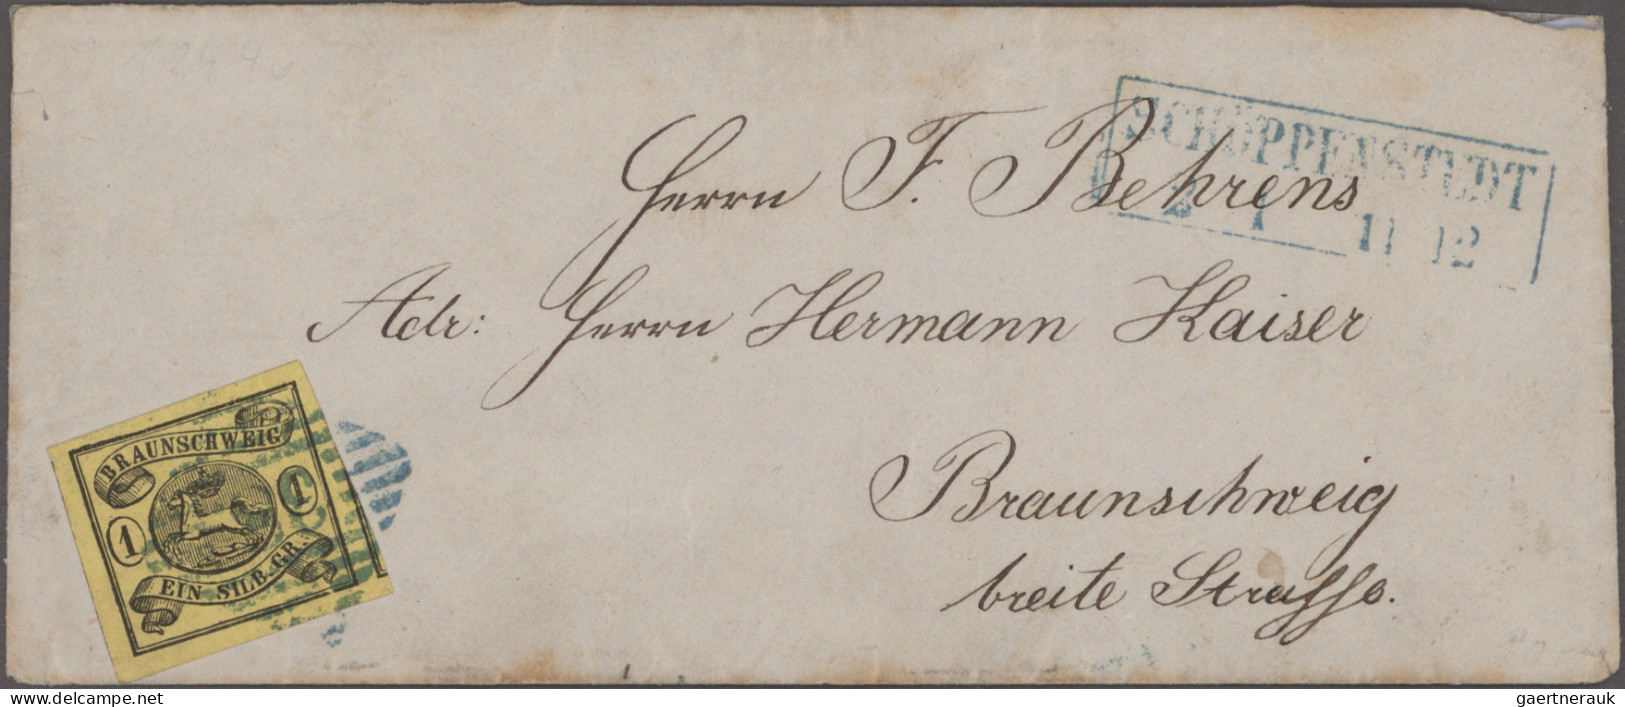 SCHÖPPENSTEDT
2 1 11 12
Herrn F. Behrens
Adr: Herrn Hermann Kaiser
Braunschweig
breite Strasse.
BRAUNSCHWEIG
1 1
EIN SILB.GR.
https://www.delcampe.net
gaertnerauk